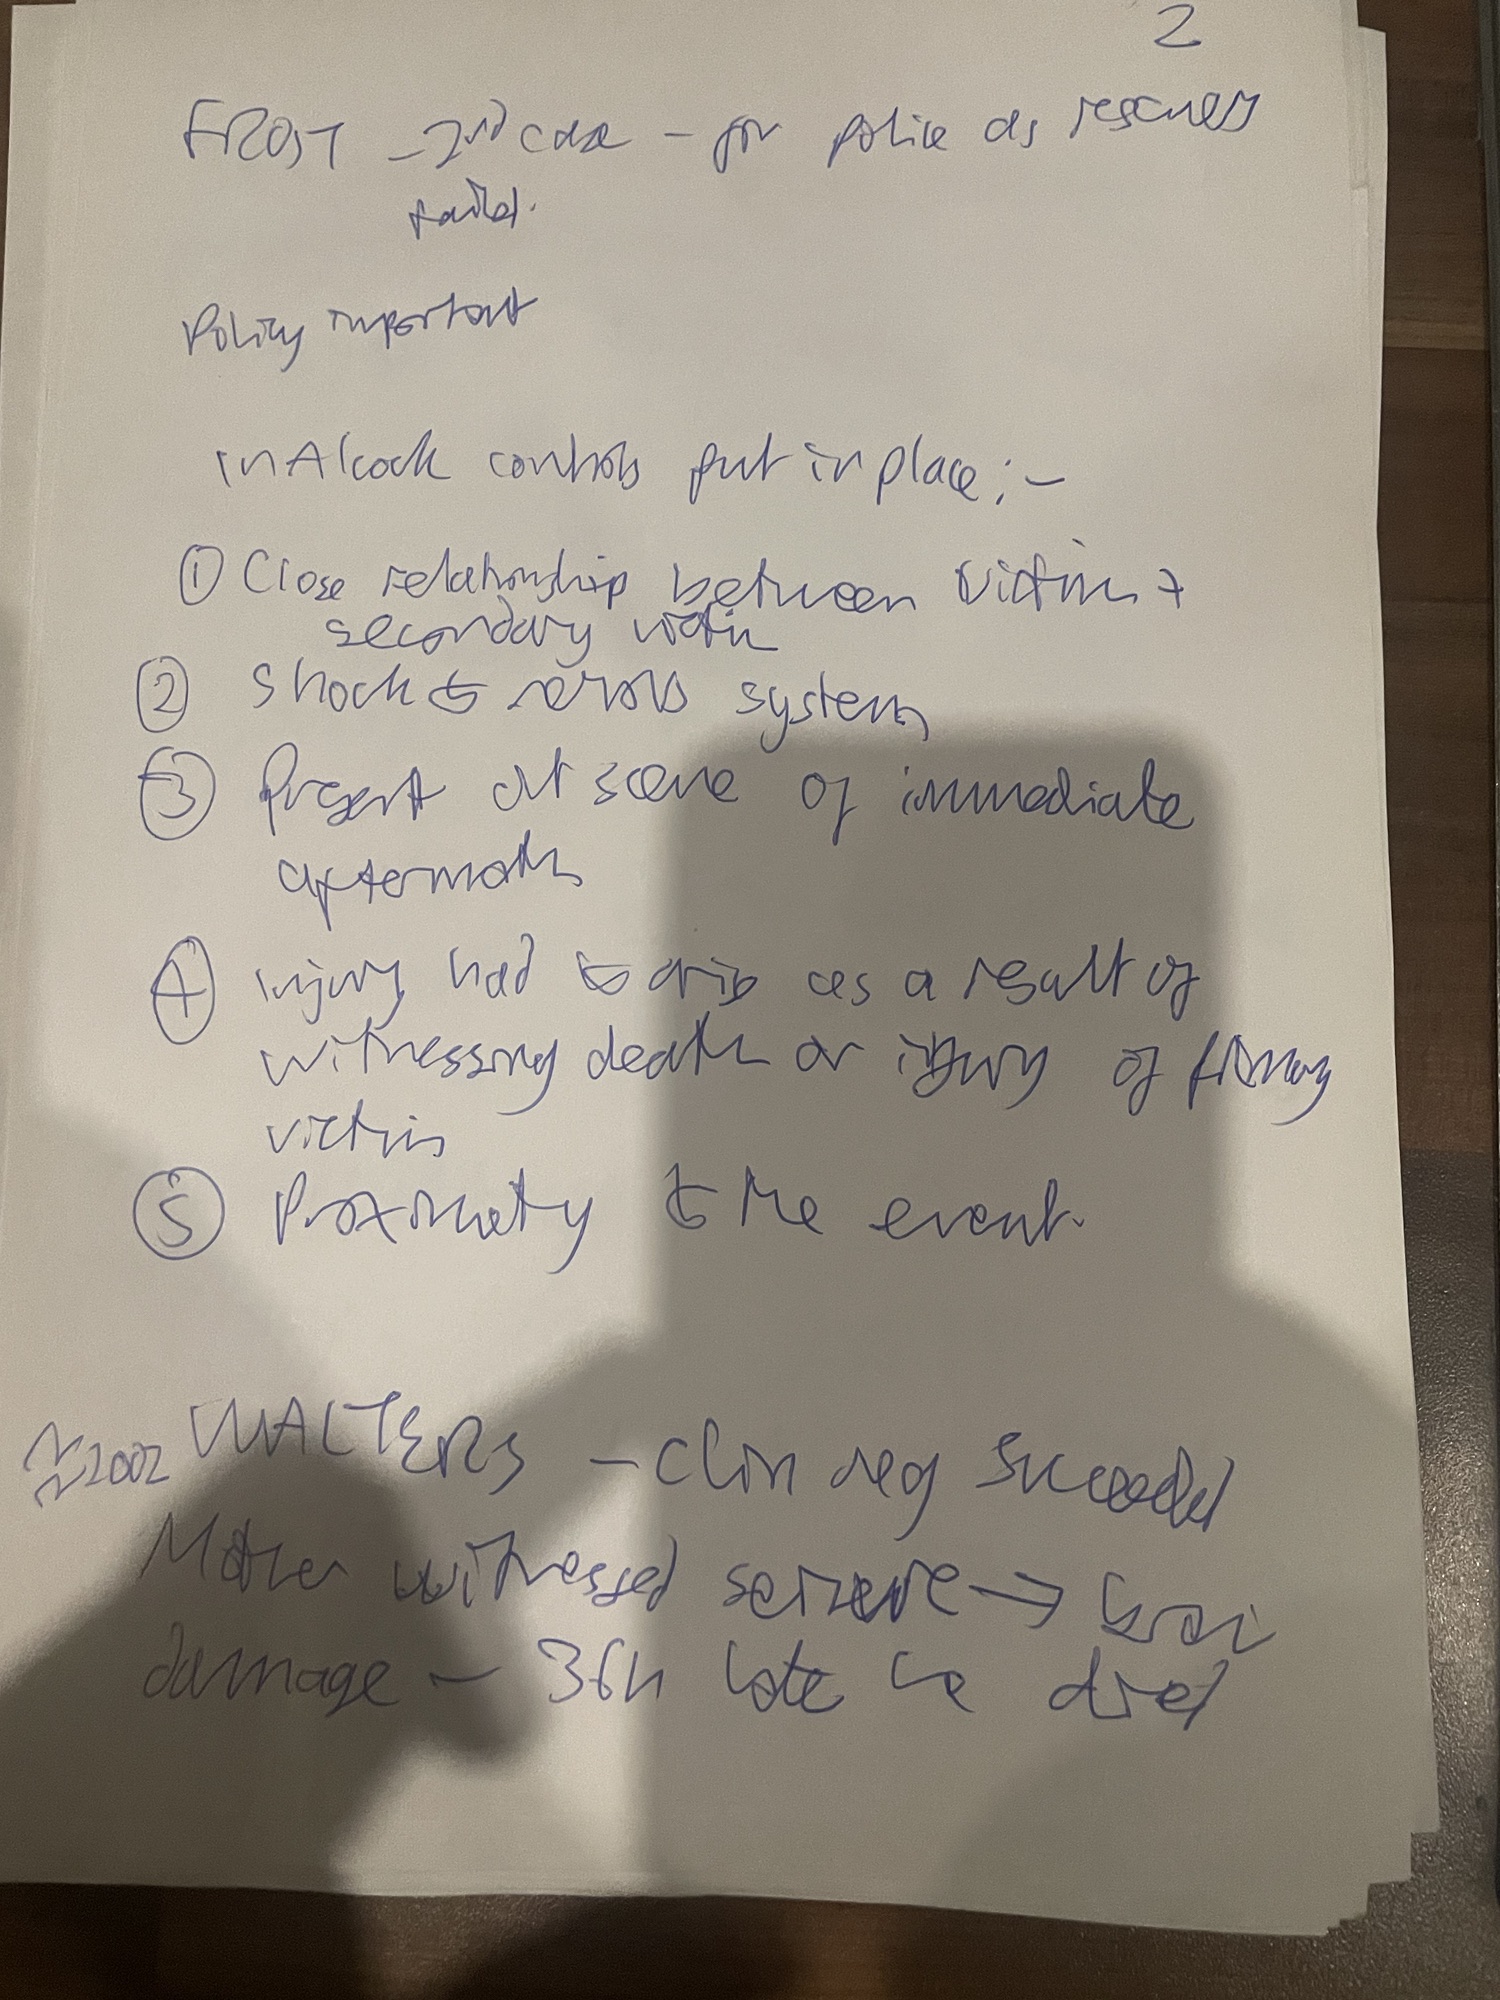 2
FROST - 2nd case - for police as rescuers
failed.
Policy important
in Alcock controls put in place :-
① Close relationship between victim +
secondary victim
② Shock to nervous system
③ Present at scene of immediate
aftermath
④ injury had to arise as a result of
witnessing death or injury of primary
victim
⑤ Proximity to the event.
2002 WALTERS - clin neg succeeded
Mother witnessed seizure → brain
damage - 36h late he died